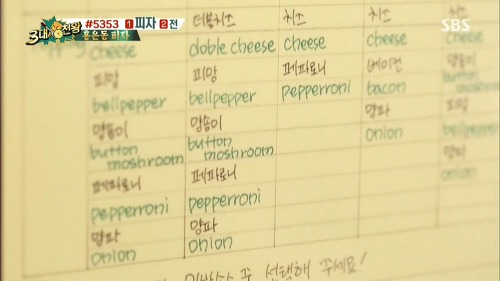 3대천왕
#5353 1 피자 2 전
홍은동 피자
SBS
cheese
피망
bellpepper
양송이
button
moshroom
페파로니
pepperroni
양파
onion
더블치즈
doble cheese
피망
bellpepper
양송이
button
moshroom
페파로니
pepperroni
양파
onion
치즈
cheese
페파로니
pepperroni
치즈
cheese
베이컨
bacon
양파
onion
cheese
양송이
button
moshroom
피망
bellpepper
양파
onion
중 선택해 주세요!